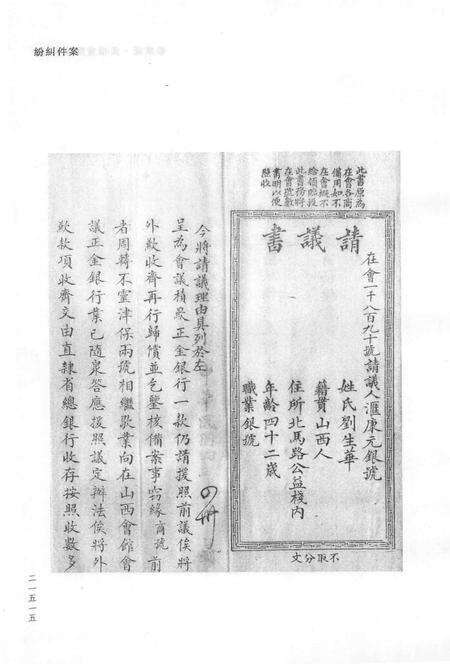 案件糾紛
此書原為
在會各商
備用如不
在會概不
給領臨投
此書務將
在會號數
寫明以便
照收
請議書
在會一千八百九十號請議人滙康元銀號
姓氏劉生華
籍貫山西人
住所北馬路公益棧內
年齡四十二歲
職業銀號
不取分文
今將請議理由具列於左
呈為會議積欠正金銀行一款仍請援照前議俟將
外欠收齊再行歸償並乞鑒核備案事竊緣商號前
者周轉不靈津保兩號相繼歇業向在山西會館會
議正金銀行業已隨衆答應援照議定辦法俟將外
欠款項收齊交由直隸省總銀行收存按照收數多
二一五一五